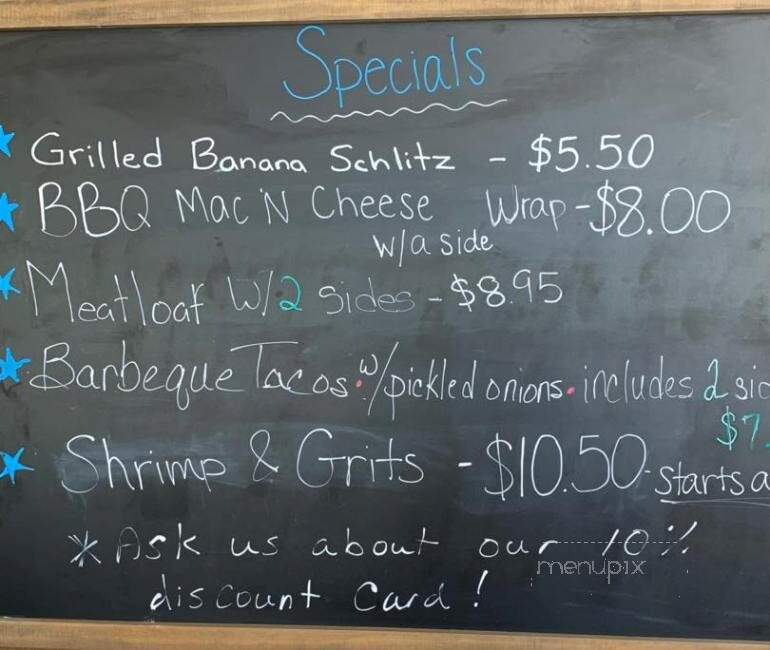 Specials
Grilled Banana Schlitz - $5.50
BBQ Mac 'N Cheese Wrap - $8.00
w/a side
Meatloaf w/2 sides - $8.95
Barbeque Tacos w/pickled onions. includes 2
$7.
Shrimp & Grits - $10.50 - starts
* Ask us about our 10%
menupix
discount Card!